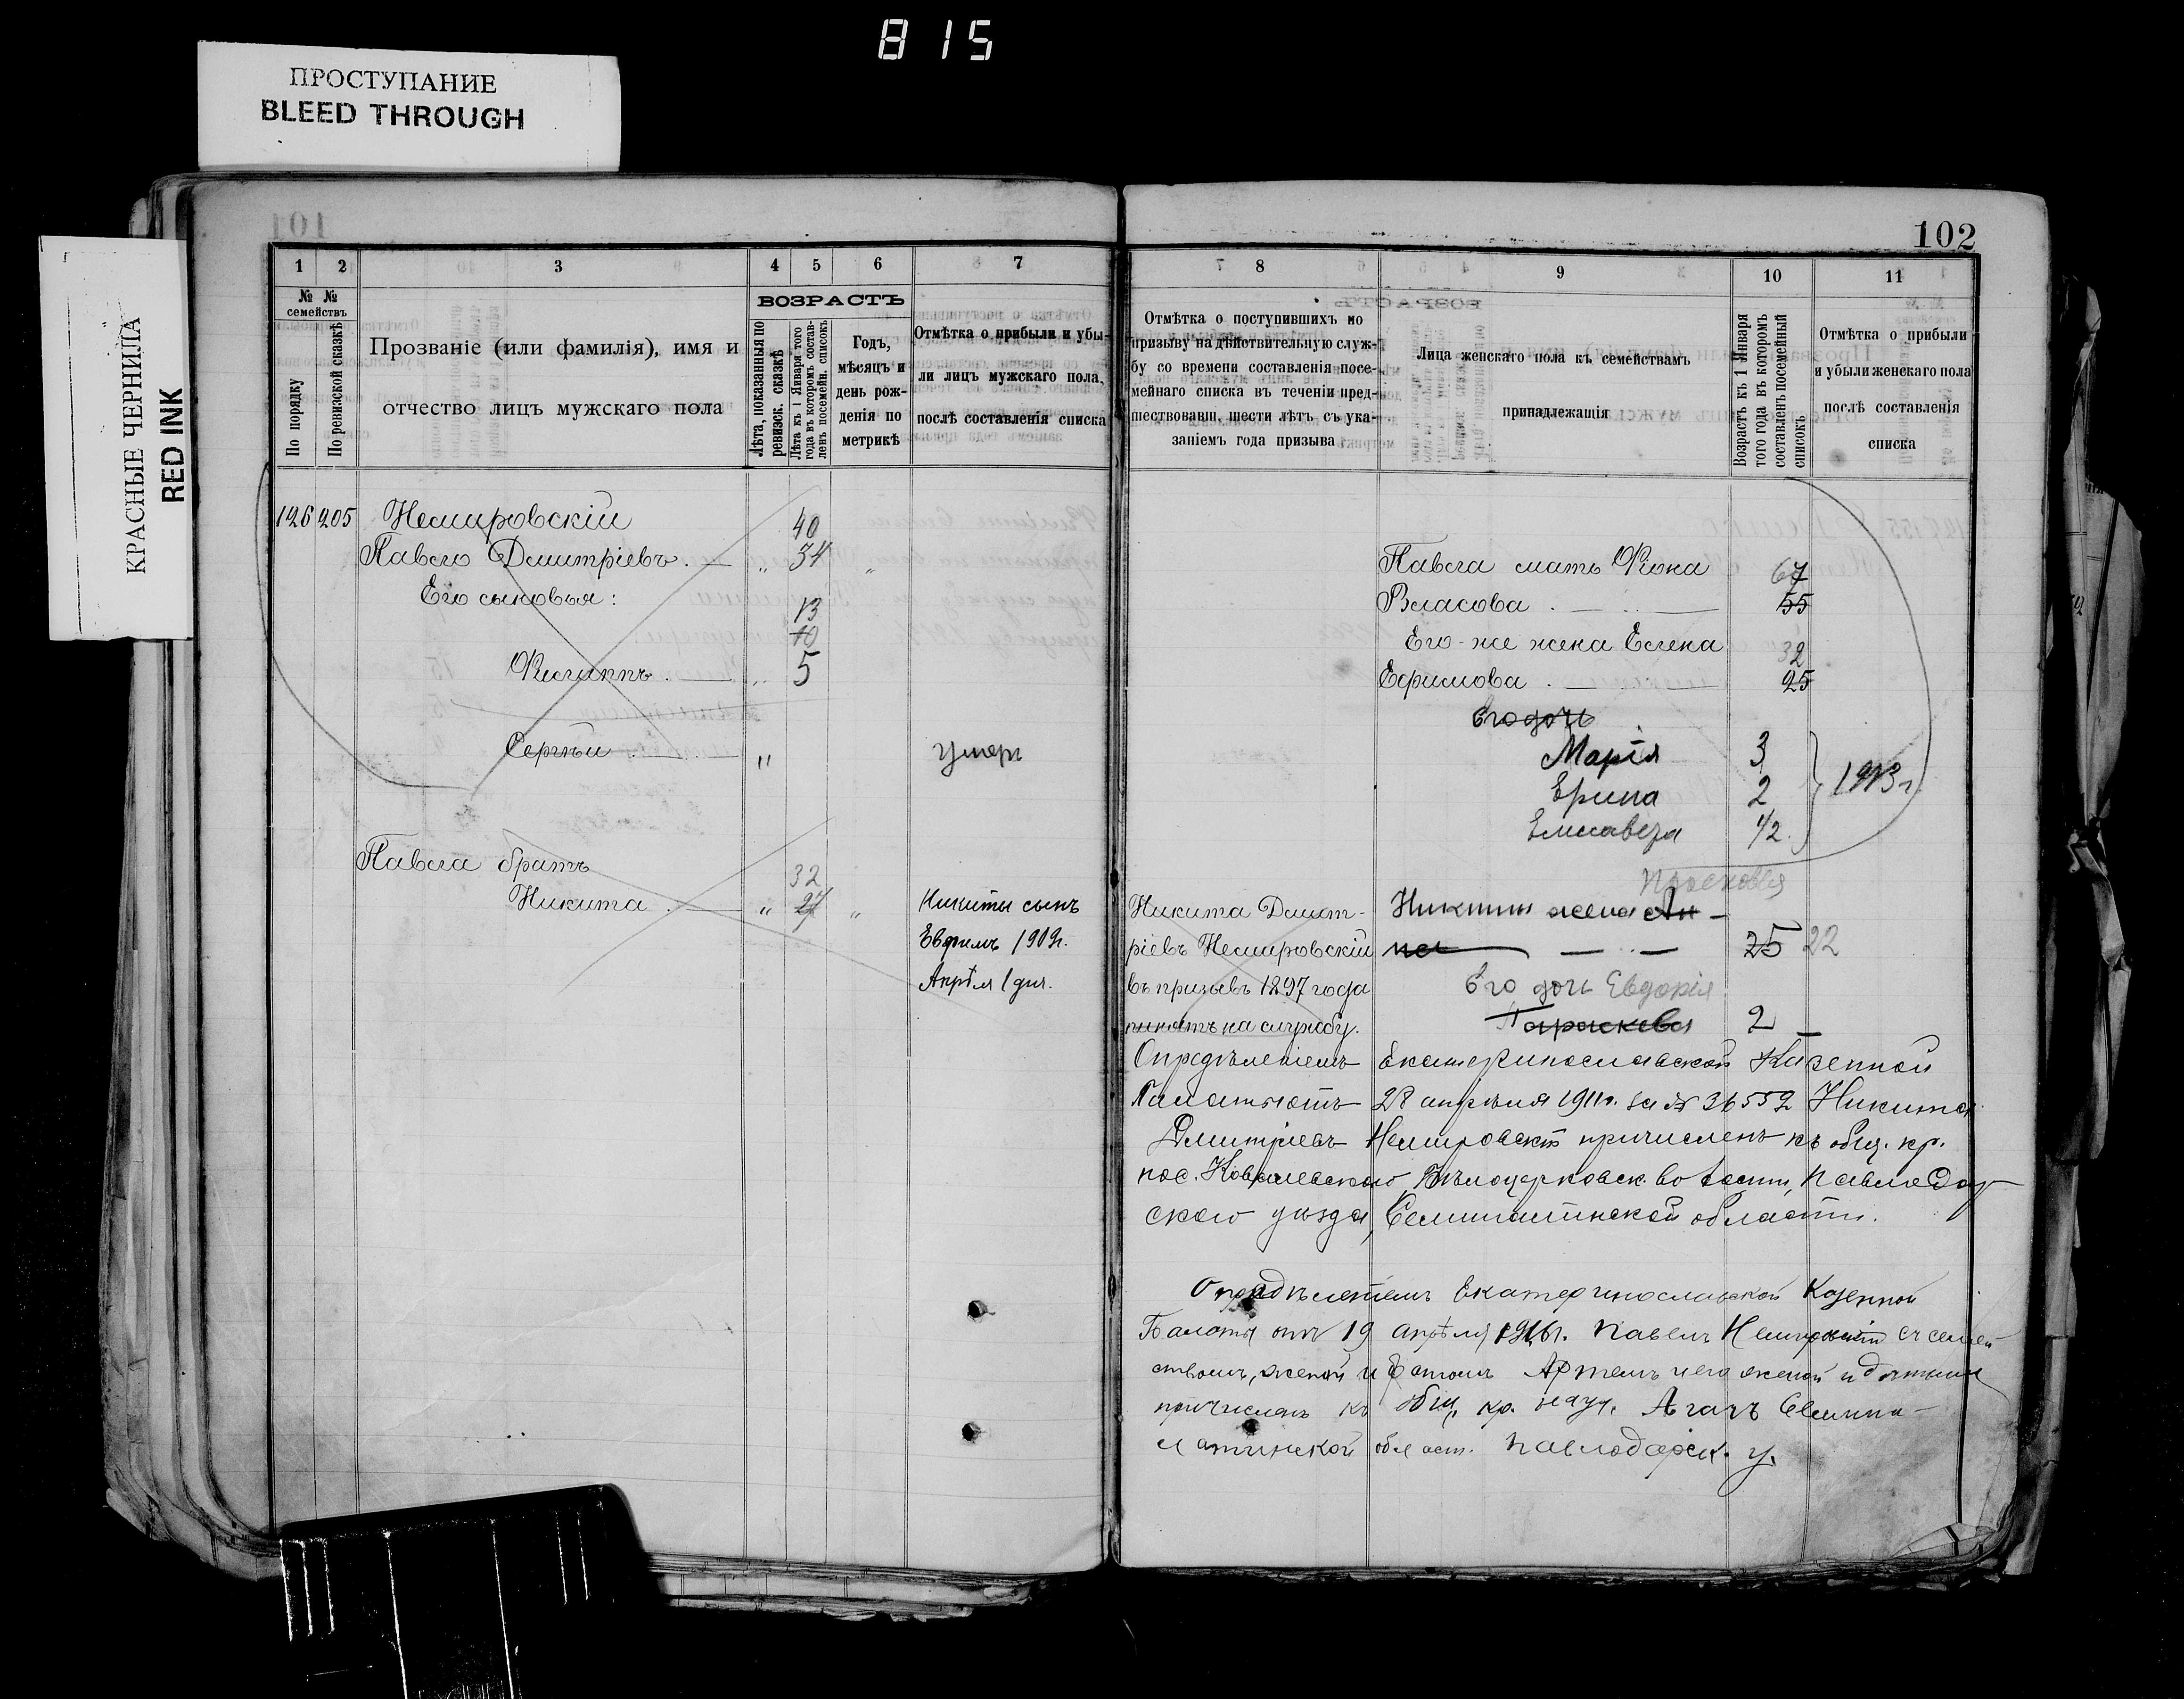 815
ПРОСТУПАНИЕ
BLEED THROUGH
КРАСНЫЕ ЧЕРНИЛА
RED INK
101
102
1 2 3 4 5 6 7
№ № семействъ
По порядку
По ревизской сказкѣ
Прозваніе (или фамилія), имя и
отчество лицъ мужскаго пола
ВОЗРАСТЪ
Лѣта, показанныя по
ревизск. сказкѣ
Лѣта къ 1 Января того
года въ которомъ состав-
ленъ посемейн. списокъ
Годъ,
мѣсяцъ и
день рож-
денія по
метрикѣ
Отмѣтка о прибыли и убы-
ли лицъ мужскаго пола,
послѣ составленія списка
126 205 Немировскій 40
Павелъ Дмитріевъ. — „ 34 „
Его сыновья:
13
10
Филиппъ . — „ 5
Сергѣй . — „ умеръ
Павла братъ
32
Никита . — „ 27 „ Никиты сынъ
Евфимъ 1909г.
Апрѣля 1 дня.
8 9 10 11
Отмѣтка о поступившихъ по
призыву на дѣйствительную служ-
бу со времени составленія посе-
мейнаго списка въ теченіи пред-
шествовавш. шести лѣтъ съ ука-
заніемъ года призыва
Лица женскаго пола къ семействамъ
принадлежащія
Возрастъ къ 1 Января
того года въ которомъ
составленъ посемейный
списокъ
Отмѣтка о прибыли
и убыли женскаго пола
послѣ составленія
списка
Павла мать Фіона 67
Власова . — 55
Его-же жена Елена 32
Ефимова . — 25
Его дочь
Марія 3
Ерина 2 1913 г
Елисавета 1/2
Прасковья
Никита Дмит- Никиты жена Ан-
ріевъ Немировскій на — 25 22
въ призывъ 1897 года Его дочь Евдокія
принятъ на службу. Параскева 2
Опредѣленіемъ Екатеринославской Казенной
Палаты отъ 28 апрѣля 1911г. за № 36552 Никита
Дмитріевъ Немировскій причисленъ къ общ. кр.
пос. Ковалевскаго Бѣлоцерковск. волости, Павлодар
скаго уѣзда, Семипалатинской области.
Опредѣленіемъ Екатеринославской Казенной
Палаты отъ 19 апрѣля 1916г. Павелъ Немировскій съ семей-
ствомъ, женой и Артемъ его женой и дѣтьми
причисленъ къ общ. кр. Агачъ Семипа-
латинской област. Павлодарск. у.